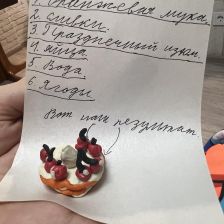 1. Оранжевая мука.
2. сливки.
3. Праздничный изюм.
4. яйца
5 Вода
6. Ягоды
Вот наш результат.